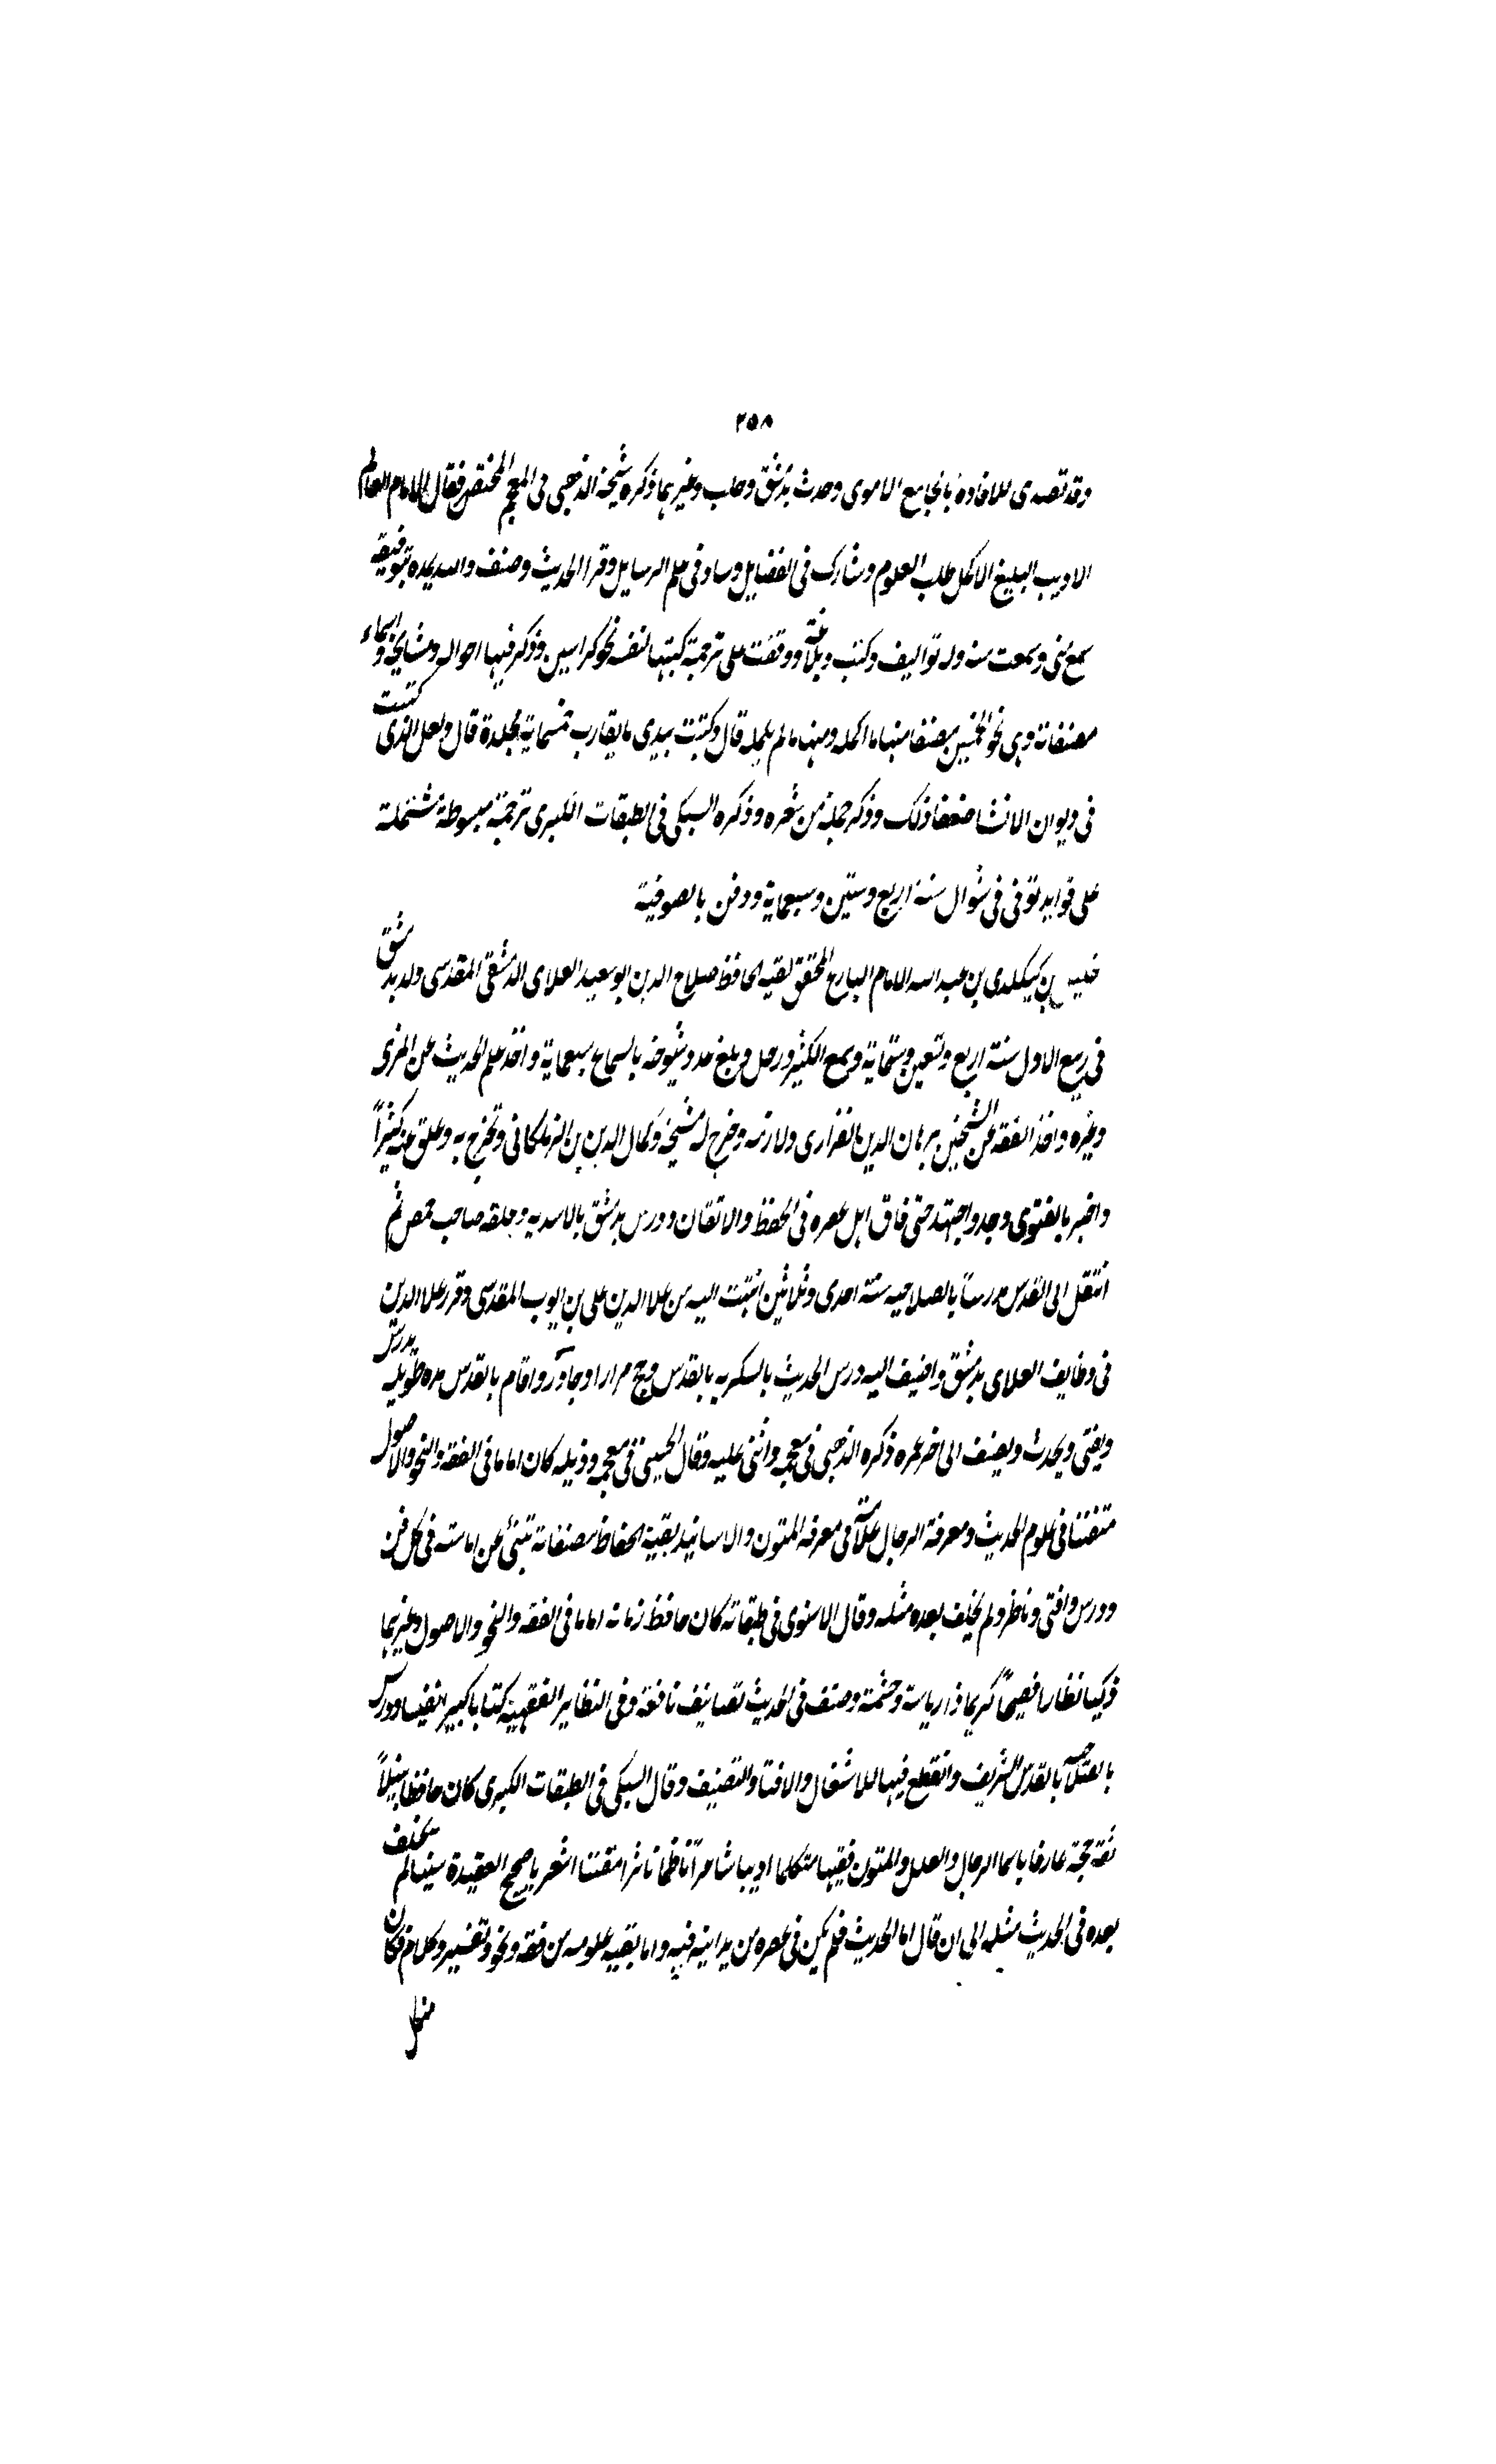 ٢٥٨
وقد تصدى للافادة بالجامع الاموى وحدث بدمشق وحلب وغيرهما ذكره شيخه الذهبى فى المعجم المختصر فقال الامام العالم
الاديب البليغ الاكمل طلب العلوم وشارك فى الفضايل وساد فى علم الرسايل وقرا الحديث وصنف والله يمده بتوفيقه
سمع منى وسمعت منه وله تواليف وكتب وبلاغة ووقفت على ترجمة كتبها لنفسه نحو كراسين وذكر فيها احواله ومشايخه واسماء
مصنفاته وهى نحو الخمسين مصنفا منها ما اكمله ومنها ما لم يكمله قال وكتبت بيدى ما يقارب خمسماية مجلدة قال ولعل الذى كتبت
فى ديوان الانشا ضعفا ذلك وذكر جملة من شعره وذكره السبكى فى الطبقات الكبرى ترجمة مبسوطة مشتملة
على فوايد توفى فى شوال سنة اربع وستين وسبعماية ودفن بالصوفية
خليل بن كيكلدى بن عبد الله الامام البارع المحقق بقية الحافظ صلاح الدين ابو سعيد العلاى الدمشقى المقدسى ولد بدمشق
فى ربيع الاول سنة اربع وتسعين وستماية وسمع الكثير ورحل وبلغ عدد شيوخه بالسماع سبعماية واخذ علم الحديث عن المزى
وغيره واخذ الفقه عن الشيخين برهان الدين الفزارى ولازمه وخرج له مشيخة وكمال الدين بن الزملكانى وتخرج به وعلق عنه كثيراً
واخبر بالفتوى وجد واجتهد حتى فاق اهل عصره فى الحفظ والاتقان ودرس بدمشق بالاسديه وبحلقه صاحب حمص ثم
انتقل الى القدس مدرساً بالصلاحيه سنة احدى وثلاثين انتهت اليه من علا الدين على بن ايوب المقدسى وقرر علا الدين
فى وظايف العلاى بدمشق واضيف اليه درس الحديث بالسكريه بالقدس وحج مرارا وجاور واقام بالقدس مده طويله يدرس
ويفتى ويحدث ويصنف الى اخر عمره ذكره الذهبى فى معجمه واثنى عليه وقال الحسينى فى معجمه وذيله كان اماما فى الفقه والنحو والاصول
متفننا فى علوم الحديث ومعرفة الرجال علامة فى معرفه المتون والاسانيد بقية الحفاظ مصنفاته تنبئ عن امامته فى كل فن
ودرس وافتى وناظر ولم يخلف بعده مثله وقال الاسنوى فى طبقاته كان حافظ زمانه اماما فى الفقه والنحو والاصول وغيرها
ذكيا نظارا فصيحاً كريما ذا رياسة وحشمة وصنف فى الحديث تصانيف نافعة وفى النظاير الفقهية كتابا كبيرا نفيسا ودرس
بالصلاحية بالقدس الشريف وانقطع فيها للاشغال والافتا والتصنيف وقال السبكى فى الطبقات الكبرى كان حافظا نبيلاً
ثقة حجة عارفا باسما الرجال والعلل والمتون فقيها متكلما اديبا شاعراً ناظما ناثرا متقنا اشعريا صحيح العقيدة سنيا لم يخلف
بعده فى الحديث مثله الى ان قال اما الحديث فلم يكن فى عصره من يدانيه فيه واما بقيه علومه من فقه ونحو وتفسير وكلام فكان